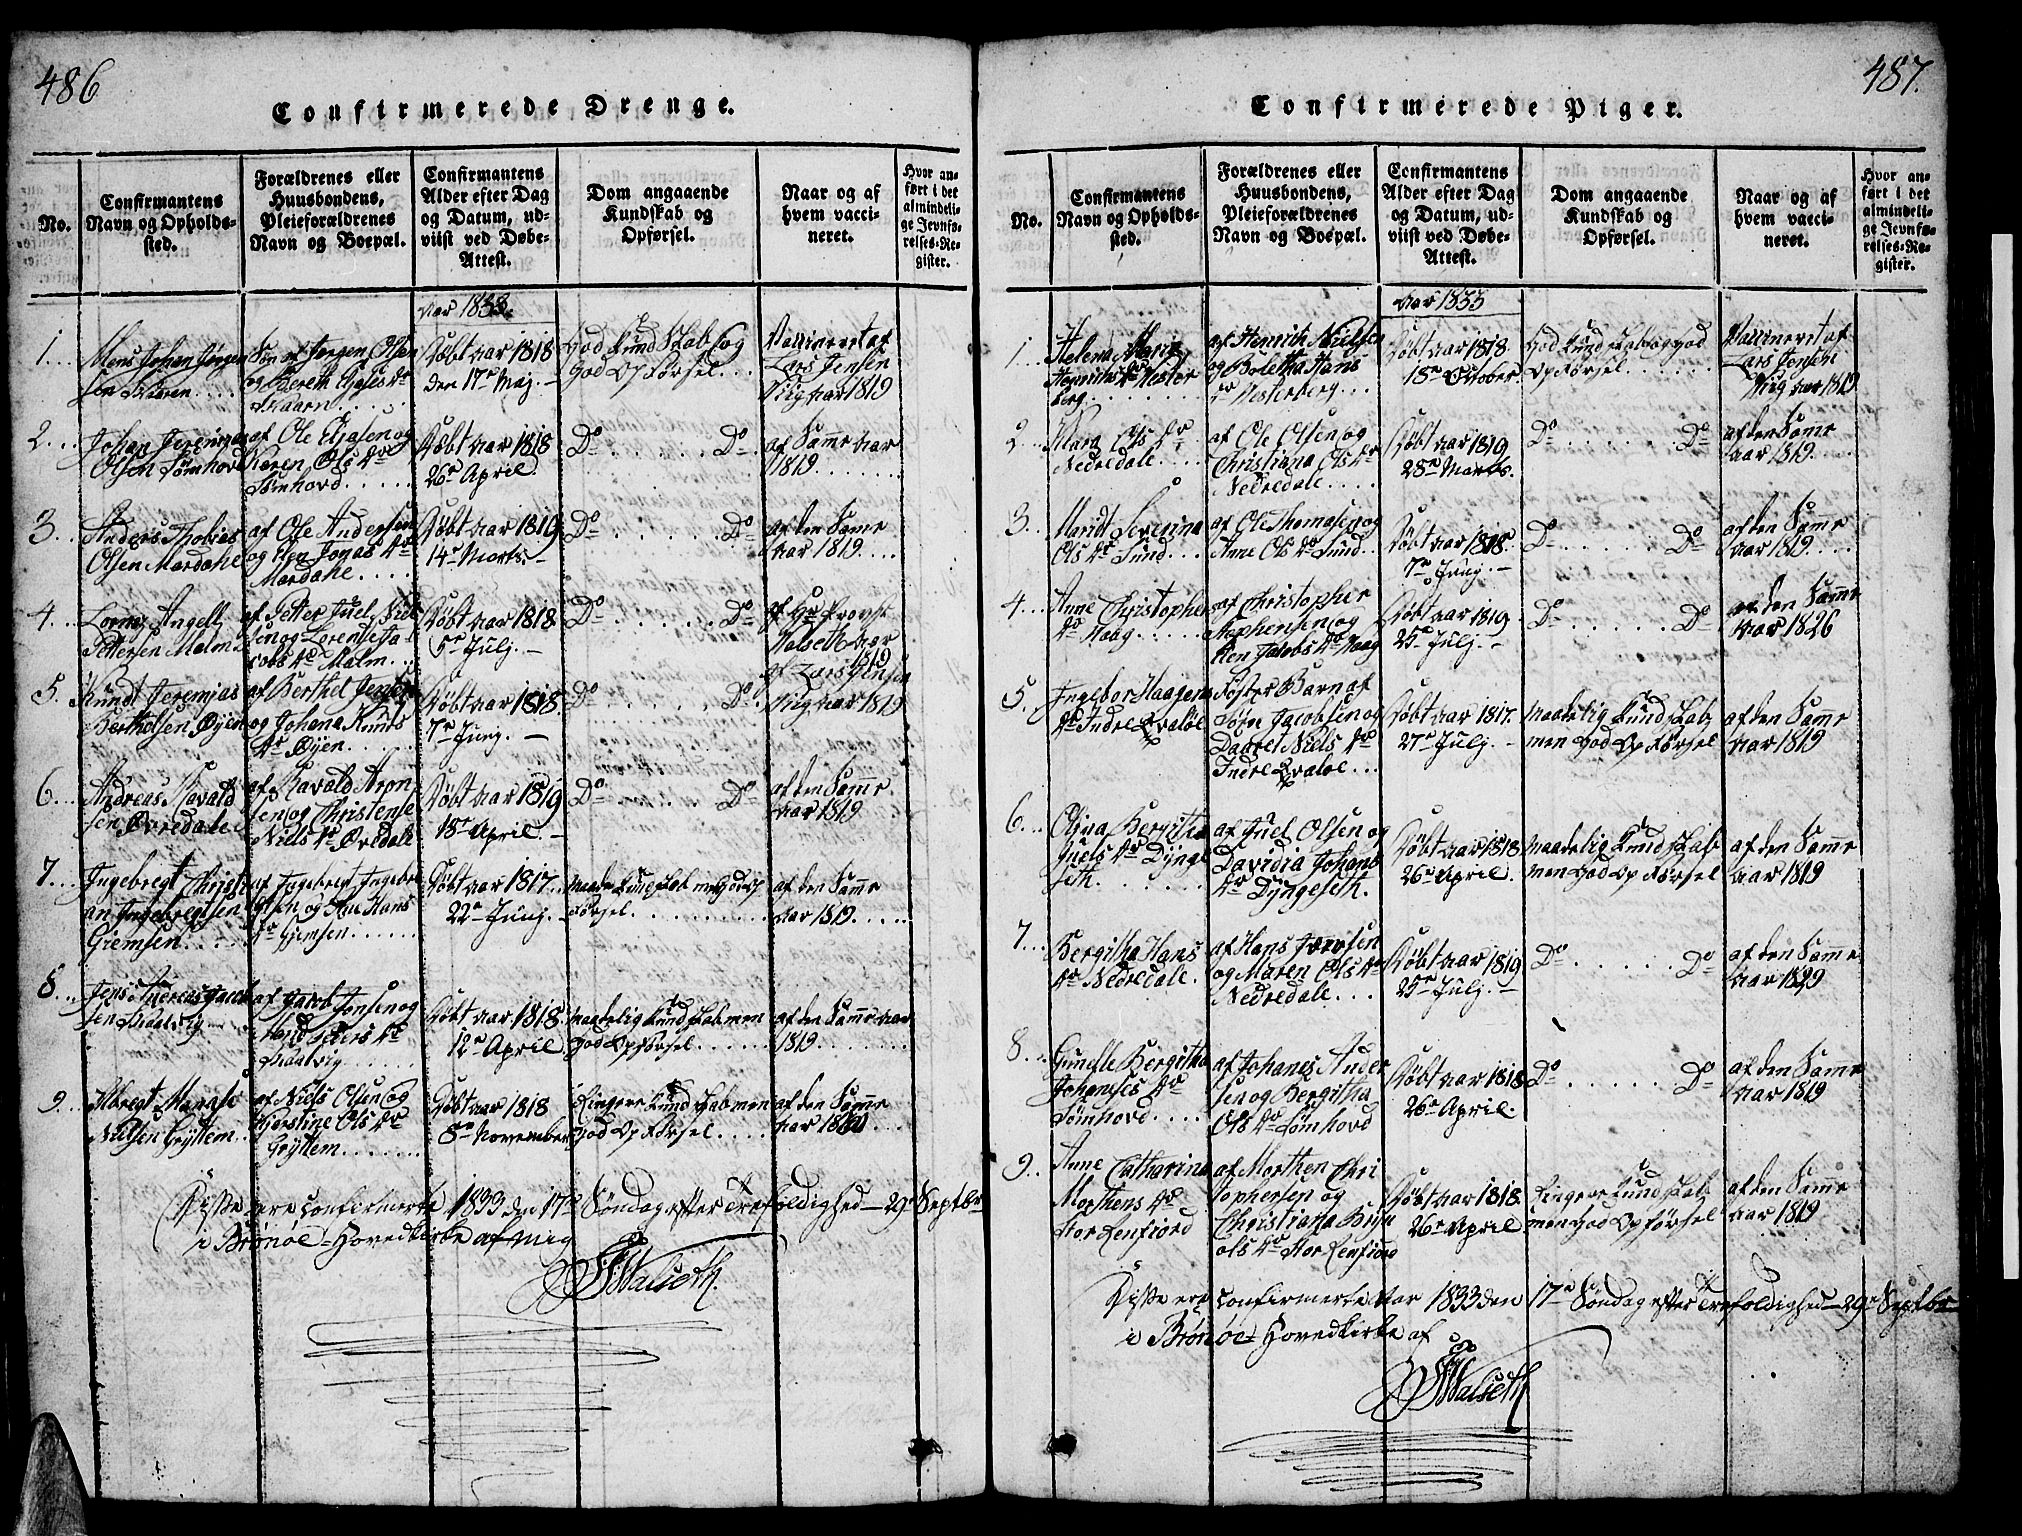 486
Confirmerede Drenge.
No.
Confirmantens
Navn og Opholds-
sted.
Forældrenes eller
Huusbondens,
Pleieforældrenes
Navn og Boepæl.
Confirmantens
Alder efter Dag
og Datum, ud-
viist ved Døbe-
Attest.
Dom angaaende
Kundskab og
Opførsel.
Naar og af
hvem vacci-
neret.
Hvor an-
ført i det
almindeli-
ge Jevnfø-
relses-Re-
gister.
Aar 1833.
1
Mons Johan Jørgen
sen Skaaren
Søn af Jørgen Olsen
og Bereth
Skaarn
Døbt aar 1818
den 17e Maj.
God Kundskab og
god Opførsel
Vaccineret af
Lars Jensen
Viig aar 1819
2
Johan Jeremias
Olsen Sømhovd
af Ole
og
Karen Ols Dr
Sømhovd
Døbt aar 1818
26e April
Do Do
af Samme aar
1819
3
Anders Thobias
Olsen Mardahl
af Ole Andersen
og Elen Jonas Dr
Mardahl
Døbt aar 1819
14e Marts.
Do Do
af den Samme
aar 1819
4
Angell
Pettersen Malm
af Petter Juel Niel
sen og Lorense Ja
cobs Dr Malm
Døbt aar 1818
5e Julj.
Do Do
af Hr Provst
Walseth aar
1819
5.
Knudt Jeremias
Berthelsen Øyen
af Berthel Jensen
og Johana Knuds
Dr Øyen
Døbt aar 1818.
7e Junj.
Do Do
af Lars Jensen
Viig aar 1819
6
Andreas Ravald
sen Øvredale
af Ravald Aron
sen og Christense
Niels Dr Øvredale
Døbt aar 1819
18e April.
Do Do
af den Samme
aar 1819
7
Ingebregt Christi
an Ingebregtsen
Giemsen
af Ingebregt Ingebre
gtsen og Ane Hans
Dr Gjemsen
Døbt aar 1817.
22e Junj.
Maade Kundskab men god Op
førsel
af den Samme
aar 1819
8
Jens Andreas Jacob
sen
af Jacob Jonsen og
Døbt aar 1818.
12e April
Maadelig Kundskab men
god Opførsel
af den Samme aar
1819
9
Albregt
Nielsen Gryttem
af Niels Olsen og
Kjerstine Ols Dr
Gryttem
Døbt aar 1818
8e November
Ringere Kundskab men
god Opførsel
af den Samme
aar
Disse ere confirmerte 1833 den 17e Søndag efter Trefoldighed 29e Septbr
i Brønøe Hovedkirke af mig
Walseth.
487.
Confirmerede Piger.
No.
Confirmantens
Navn og Opholds-
sted.
Forældrenes eller
Huusbondens,
Pleieforældrenes
Navn og Boepæl.
Confirmantens
Alder efter Dag
og Datum, ud-
viist ved Døbe-
Attest.
Dom angaaende
Kundskab og
Opførsel.
Naar og af
hvem vacci-
neret.
Hvor an-
ført i det
almindeli-
ge Jevnfø-
relses-Re-
gister.
Aar 1833
1
Helena Maria
Henriks Dr Vester
berg
af Henrik Nielsen
og Boletha Hans
Dr Vesterberg
Døbt aar 1818
18e October.
God Kundskab og god
Opførsel
Vaccineret af
Lars Jensen
Viig aar 1819
2
Mara Ols Dr
Nedredale
af Ole Olsen og
Christiana Ols Dr
Nedredale
Døbt aar 1819
28e Marts.
Do Do
af den Samme
aar 1819
3
Marit Severina
Ols Dr Sund
af Ole Thomasen og
Anne Ols Dr Sund
Døbt aar 1818.
7e Junj.
Do Do
af den Samme
aar 1819
4
Anne Christophers
Dr Haag
af Christopher
Stephensen og
Elen Jacobs Dr Haag
Døbt aar 1819
25e Julj.
Do Do
af den Samme
aar 1826
5
Ingebor Haagens
Dr Indre Qvaløe
Foster Barn af
Jacobsen og
Niels Dr
Indre Qvaløe
Døbt aar 1817.
27e Julj.
Maadelig Kundskab
men god Opførsel
af den Samme
aar 1819
6
Oljna Bergitha
Juels Dr Dynge
seth
af Juel Olsen og
Davidia Johans
Dr Dyngeseth.
Døbt aar 1818
26e April.
Maadelig Kundskab
men god Opførsel
af den Samme
aar 1819
7
Bergitha Hans
Dr Nedredale.
af Hans Iversen
og Maren Ols Dr
Nedredale
Døbt aar 1819
25e Julj.
Do Do
af den Samme
aar
8
Gunelle Bergitha
Johanses Dr
Sømhovd
af Johanes Ander
sen og Bergitha
Ols Dr Sømhovd
Døbt aar 1818
26e April.
Do Do
af den Samme
aar 1819
9
Anne Catharina
Morthens Dr
Stor Renfiord
af Morthen Chri
stophersen og
Christiana Bryn
ols Dr Stor Renfiord
Døbt aar 1818
26e April
Ringere Kundskab
men god Opførsel
af den Samme
aar 1819
Disse ere confirmerte aar 1833 den 17e Søndag efter Trefoldighed 29e Septbr
i Brønøe Hovedkirke af
Walseth